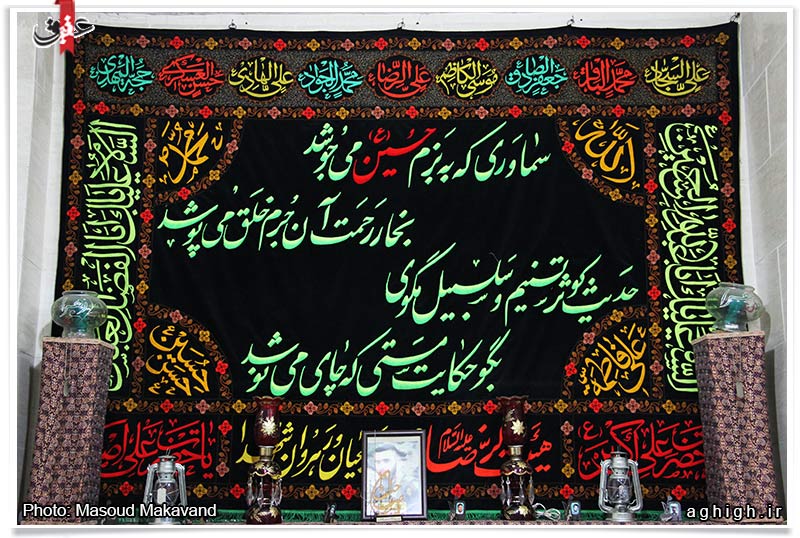 عقیق
علی السجاد محمد الباقر جعفر الصادق موسی الکاظم علی الرضا محمد الجواد علی الهادی حسن العسکری حجة المهدی
الله
محمد
سماوری که به بزم حسین (ع) می جوشد
بخار رحمت آن جرم خلق می پوشد
حدیث کوثر و تسنیم و سلسبیل مگوی
بگو حکایت مستی که چای می نوشد
السلام علیک یا ابا الفضل العباس
علی فاطمه
حسین حسن
حضرت علی اکبر
Photo: Masoud Makavand
aghigh.ir